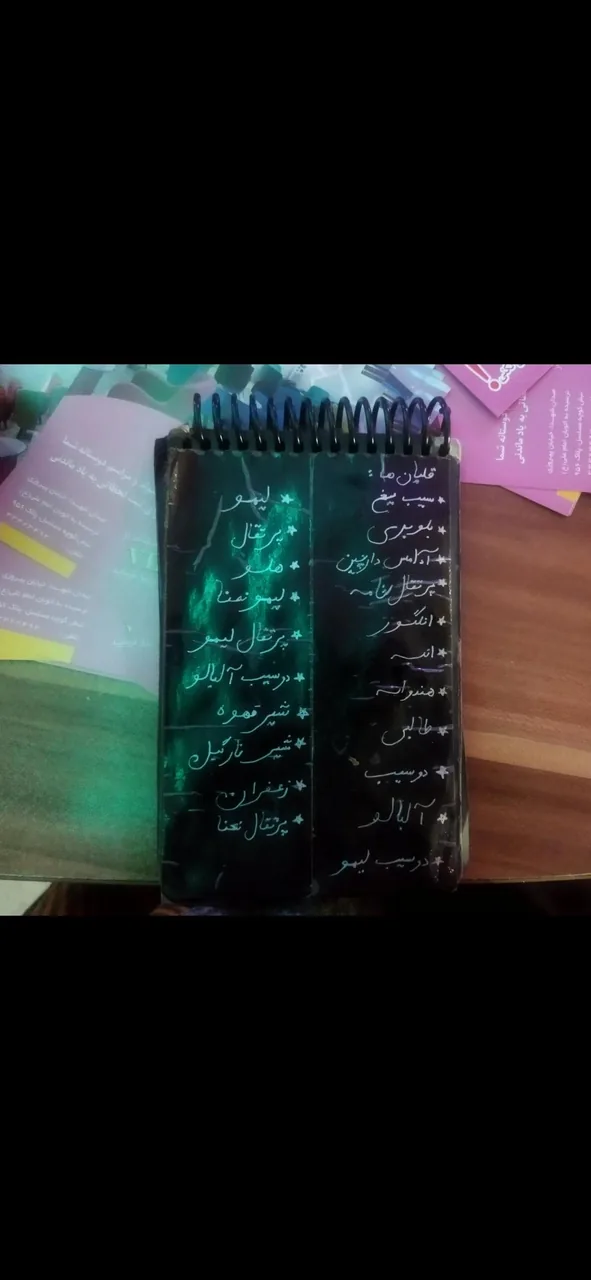 قلیان ها :
* سیب یخ
* بلوبری
* آدامس دارچین
* پرتقال خامه
* انگور
* انبه
* هندوانه
* طالبی
* دوسیب
* آلبالو
* دوسیب لیمو
* لیمو
* پرتقال
* هلو
* لیمو نعنا
* پرتقال لیمو
* دوسیب آلبالو
* شیر قهوه
* شیر نارگیل
* زعفران
* پرتقال نعنا